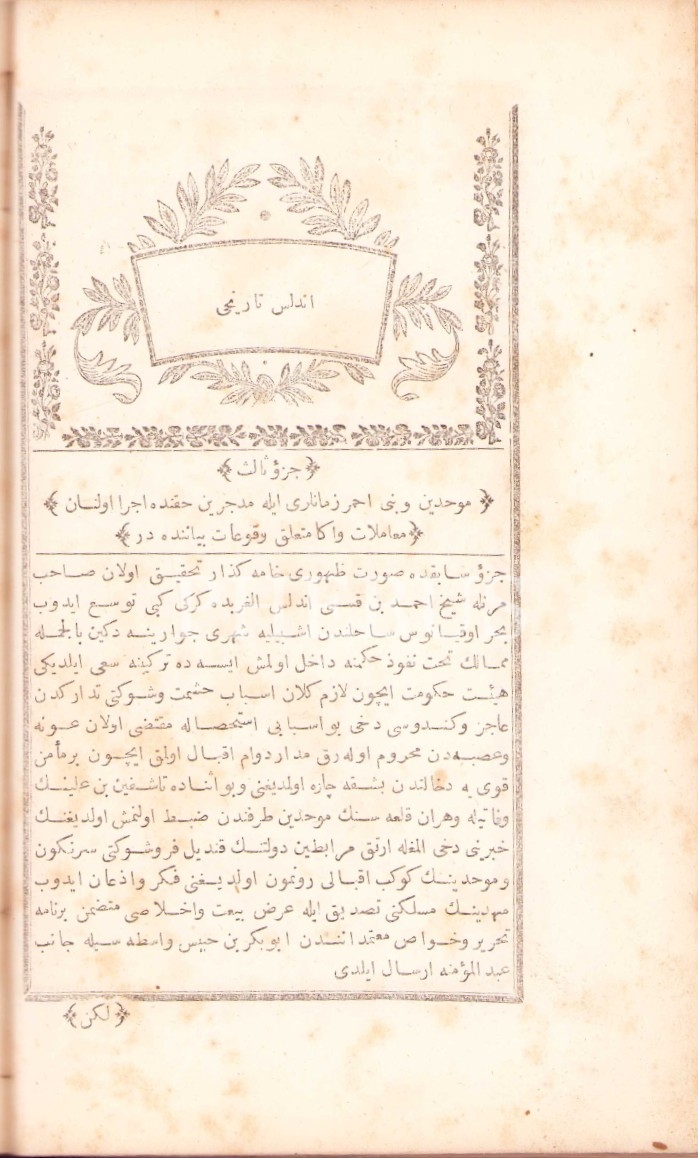 اندلس تاریخی
﴿ جزؤ ثالث ﴾
﴿ موحدین و بنی احمر زمانلری ایله مدجرین حقنده اجرا اولنان ﴾
﴿ معاملات واکا متعلق وقوعات بیاننده در ﴾
جزؤ سابقده صورت ظهوری خامه کذار تحقیق اولان صاحب
مرتله شیخ احمد بن قسی اندلس الغربده کرکی کبی توسع ایدوب
بحر اوقیانوس ساحلندن اشبیلیه شهری جوارینه دکین بالجمله
ممالك تحت نفوذ حکمنه داخل اولمش ایسه ده ترکینه سعی ایلدیکی
هیئت حکومت ایچون لازم کلان اسباب حشمت وشوکتی تدارکدن
عاجز وکندوسی دخی بو اسبابی استحصاله مقتضی اولان عونه
وعصبه دن محروم اوله رق مدار دوام اقبال اولمق ایچون بر مأمن
قوی یه دخالندن بشقه چاره اولدیغنی و بو اثناده تاشفین بن علینك
وفاتیله وهران قلعه سنك موحدین طرفندن ضبط اولنمش اولدیغنك
خبرینی دخی المغله ارتق مرابطین دولتنك قندیل فر وشوکتی سرنکون
و موحدینك کوکب اقبالی رونمون اولدیغنی فکر و اذعان ایدوب
مهدینك مسلکنی تصدیق ایله عرض بیعت واخلاصی متضمن برنامه
تحریر وخواص معتمداننندن ابو بکر بن حبیس واسطه سیله جانب
عبد المؤمنه ارسال ایلدی
﴿ لکن ﴾